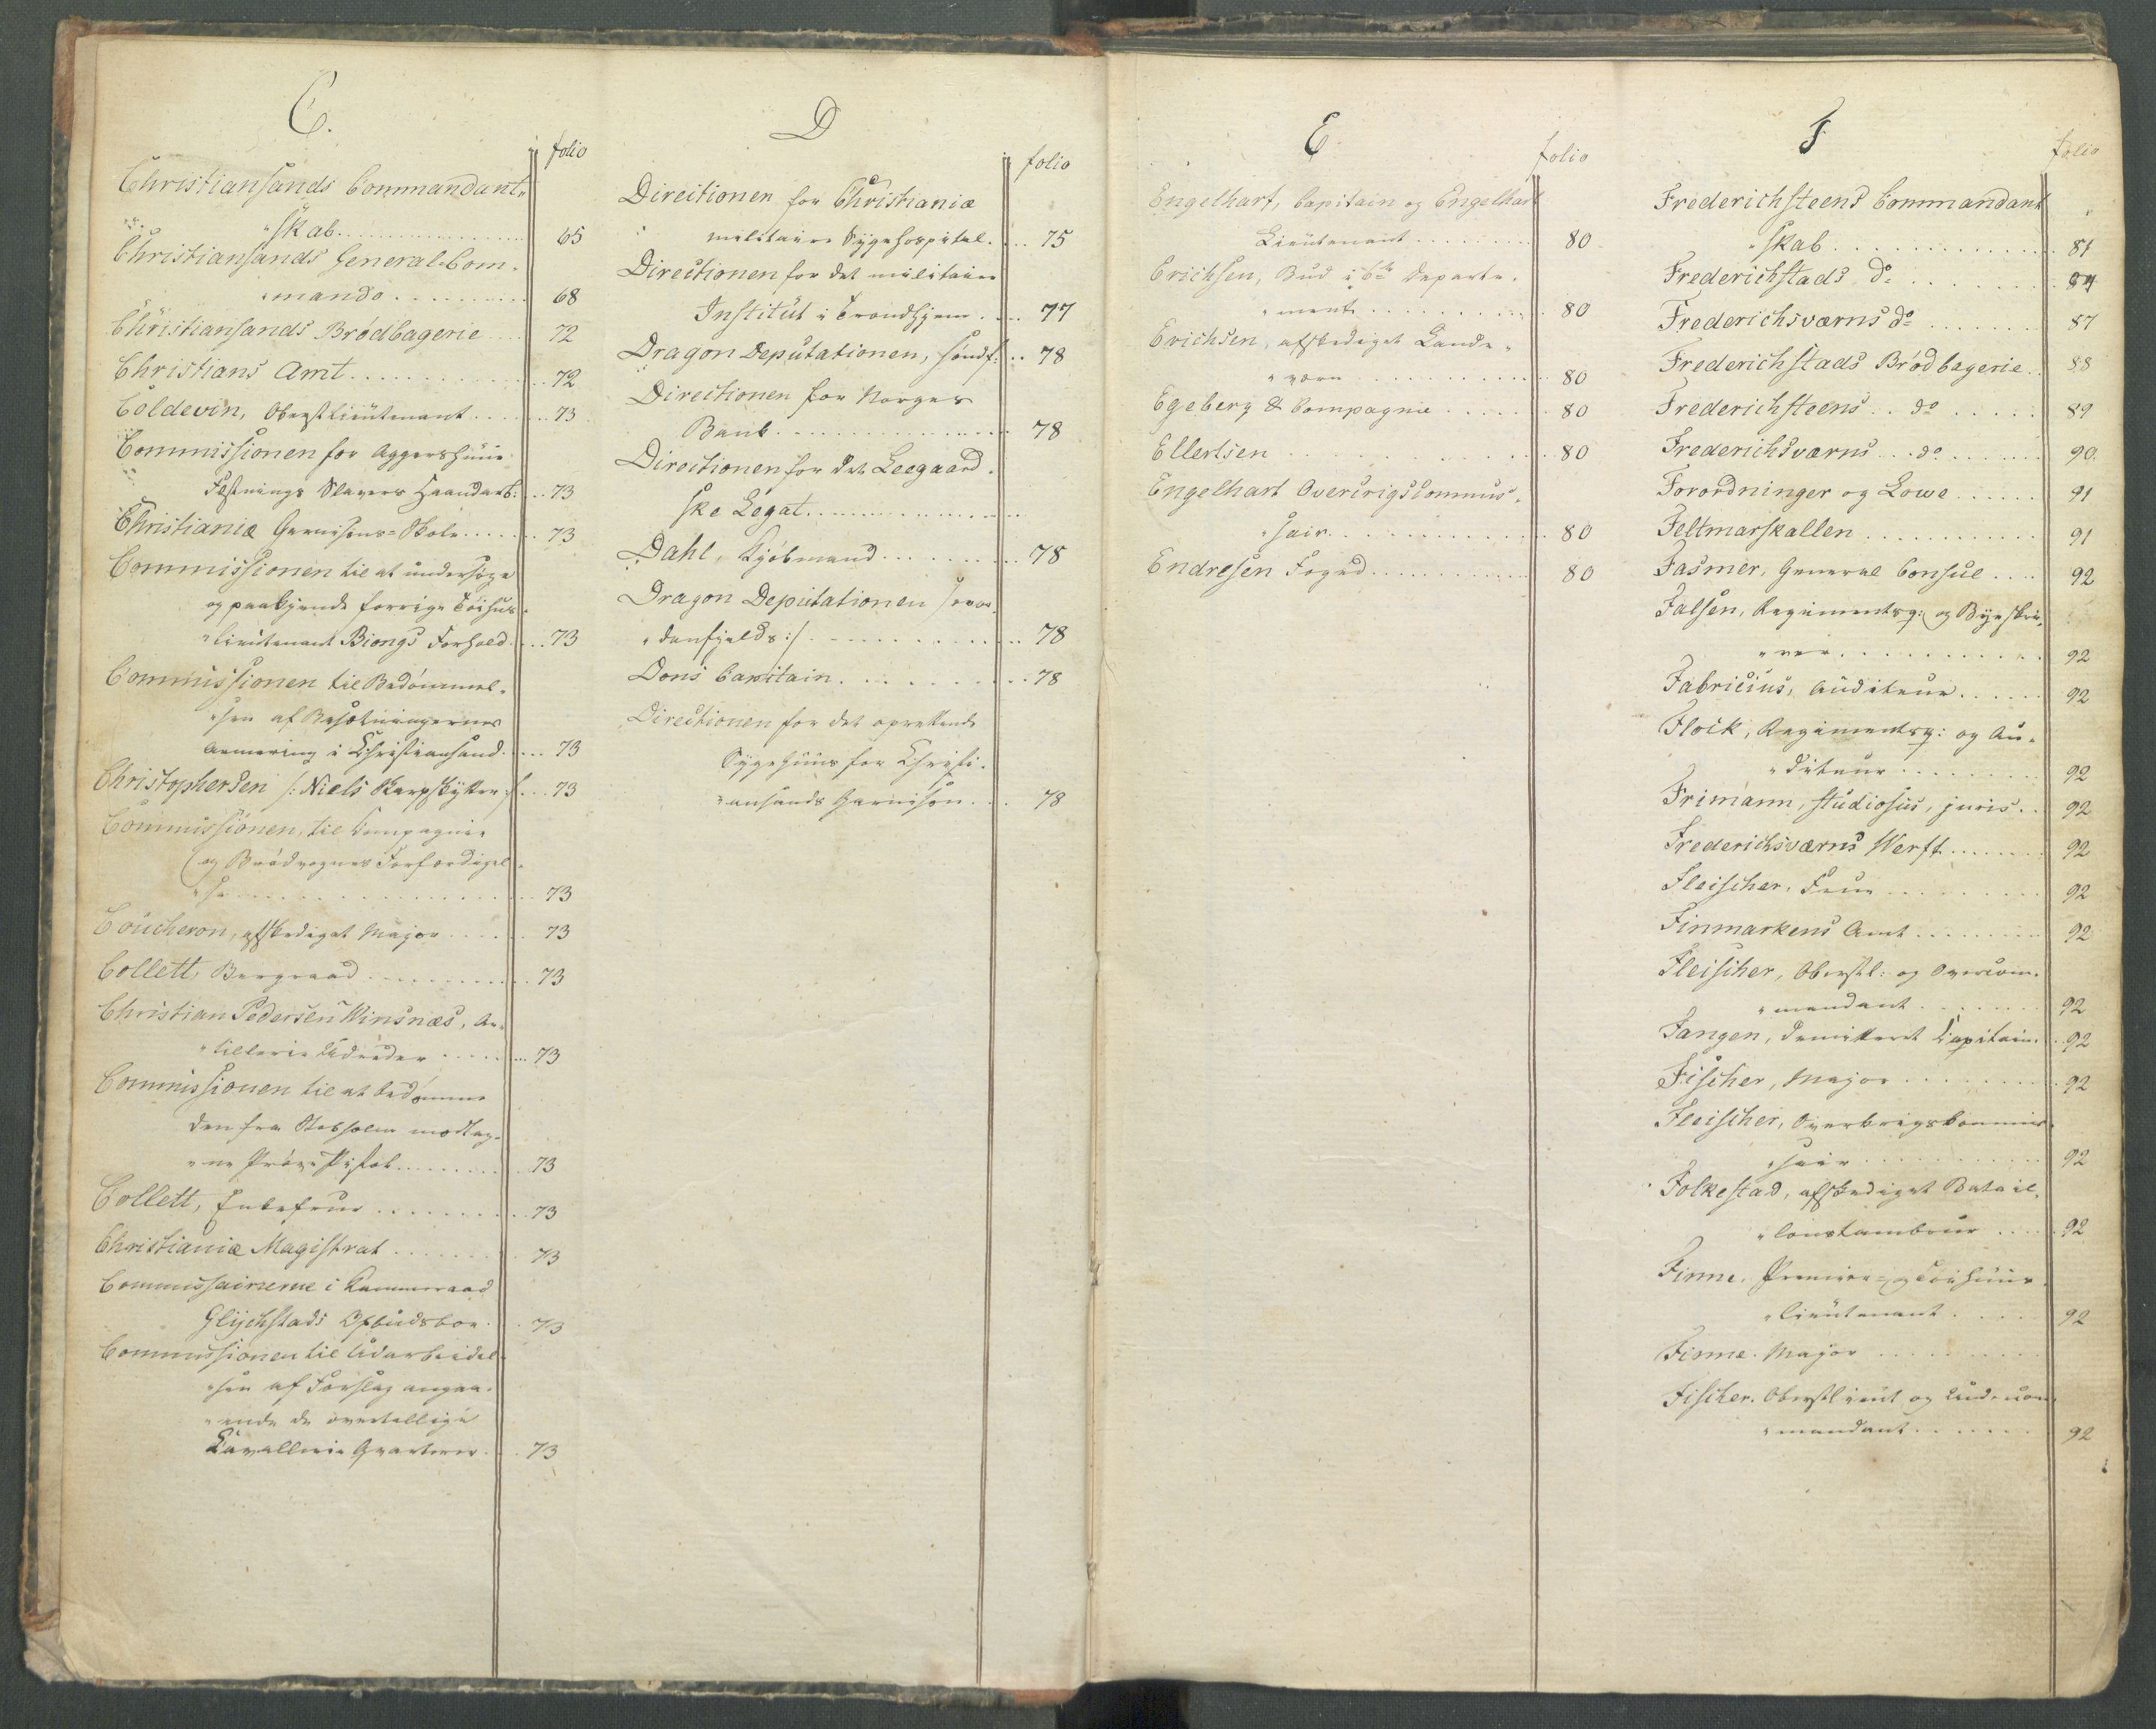 C.
folio
Christiansands Commandant-
"skab. 65
Christiansands General-Com-
"mando 68
Christiansands Brødbagerie 72
Christians Amt 72
Coldevin, Oberstlieutenant 73
Commissionen for Aggershuus
Festnings Slavers Haandarb: 73
Christiania Garnisons-Skole 73
Commissionen til at undersøge
og paakjende forrige Tøihus-
"lieutenant Biongs Forhold 73
Commissionen til Bedømmel-
"sen af Besætningernes
Armering i Christiansand 73
Christophersen /: Niels Skarpskytter :/ 73
Commissionen, til Compagnie
og Brødvognes Forfærdigel-
"se 73
Coucheron, afskediget Major 73
Collett, Bergraad 73
Christian Pedersen Winsnæs, Ar-
"tillerie Udrider 73
Commissionen til at bedømme
den fra Stokholm modtag-
"ne Prøve Pistol 73
Collett, Enkefrue 73
Christiania Magistrat 73
Commissairerne i Kammerraad
Glychstads Opbudsboe 73
Commissionen til Udarbeidel-
"sen af Forslag angaa-
"ende de overtallige
Cavallerie Qvarterer 73
D
folio
Directionen for Christiania
militaire Sygehospital 75
Directionen for det militaire
Institut i Trondhjem 77
Dragon Deputationen, søndf: 78
Directionen for Norges
Bank 78
Directionen for det Leegaard-
ske Legat
Dahl, Kjøbmand 78
Dragon Deputationen /:nor-
"denfjelds:/ 78
Dons Capitain 78
Directionen for det oprettende
Sygehuus for Christi-
"ansands Garnison 78
E
folio
Engelhart, Capitain og Engelhart
Lieutenant 80
Erichsen, Bud i 6te Departe-
"ment 80
Erichsen, afskediget Lande-
"værn 80
Egeberg & Compagnie 80
Ellertsen 80
Engelhart Overcrigscommis-
"sair 80
Endresen Foged 80
F
folio
Frederichsteens Commandant
"skab 81
Frederichstads do
Frederichsværns do 87
Frederichstads Brødbagerie 88
Frederichsteens do 89
Frederichsværns do 90
Forordninger og Lowe 91
Feltmarskallen 91
Fasmer, General Consul 92
Falsen, Regimentsq: og Byeskri-
"ver 92
Fabricius, Auditeur 92
Flock, Regimentsq: og Au-
"diteur 92
Frimann, studiosus, juris 92
Frederichsværns Werft 92
Fleischer, Frue 92
Finmarkens Amt 92
Fleischer, Oberstl: og Overcom-
"mandant 92
Fangen, demitteret Capitain 92
Fischer, Major 92
Fleischer, Overkrigskommis-
"sair 92
Folkestad, afskediget Batail-
"lonstambour 92
Finne, Premier- og Tøihuus-
"lieutenant 92
Finne, Major
Fischer, Oberstlieut og Undercom-
"mandant 92